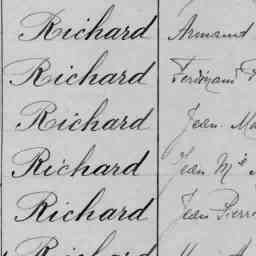 Richard Armand
Richard Ferdinand
Richard Jean
Richard Jean Mie
Richard Jean Pierre
Richard